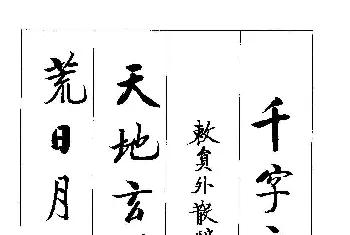 千字
敕員外散
天地玄
荒日月